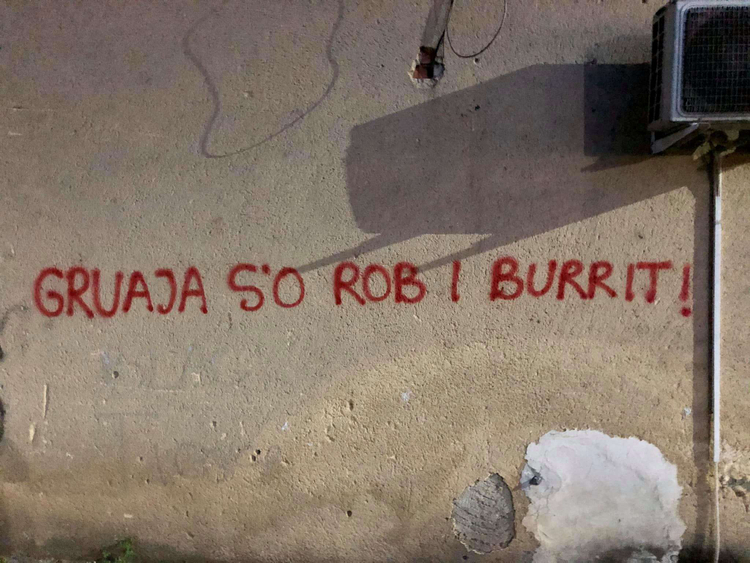 GRUAJA S'O ROB I BURRIT!